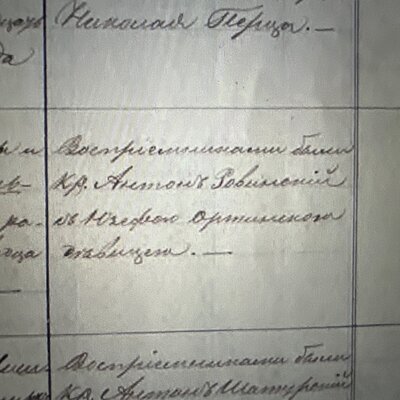 Николая Перца. —
да
Воспріемниками были
Кр. Антонъ Ровинскій
ра- съ Юзефою Оржинскою
девицею. —
Воспріемниками были
Кр. Антонъ Шатурскій